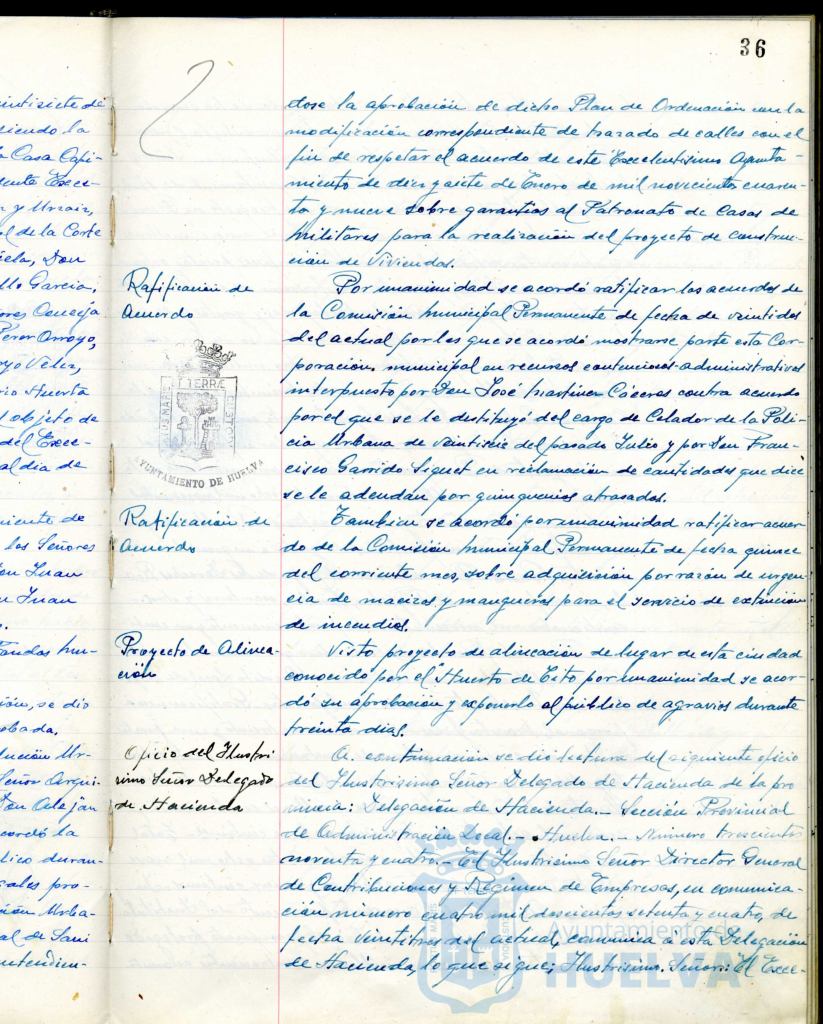 36
intisiete de
siendo la
Casa Capi-
dente Exce-
y Urzaiz,
al de la Corte
iela, Don
llo Garcia,
ores Conceja
Perez Arroyo,
oyo Velez,
rio Huerta
objeto de
del Exce-
aldia de
niente de
los Señores
on Juan
n Juan
fandas hu-
ión, se dio
obada.
lución Ur-
Señor Arqui-
Don Alejan
cordó la
lico duran-
gales pro-
ión Urba-
al de Sani
ntendien-
dose la aprobación de dicho Plan de Ordenación con la
modificación correspondiente de trazado de calles con el
fin de respetar el acuerdo de este Excelentisimo Ayunta-
miento de diez y siete de Enero de mil novecientos cuaren-
ta y nueve sobre garantias al Patronato de Casas de
Militares para la realización del proyecto de construc-
ción de Viviendas.
Ratificación de
Acuerdo
Por unanimidad se acordó ratificar los acuerdos de
la Comisión Municipal Permanente de fecha de veintidos
del actual por los que se acordó mostrarse parte esta Cor-
poración municipal en recursos contencioso-administrativos
interpuesto por Don José Martinez Cáceres contra acuerdo
por el que se le destituyó del cargo de Celador de la Poli-
cia Urbana de veintiseis del pasado Julio y por Don Fran-
cisco Garrido Siguet en reclamación de cantidades que dice
se le adeudan por quinquenios atrasados.
AYUNTAMIENTO DE HUELVA
Ratificación de
Acuerdo
Tambien se acordó por unanimidad ratificar acuer-
do de la Comisión Municipal Permanente de fecha quince
del corriente mes, sobre adquisición por razón de urgen-
cia de macizos y mangueras para el servicio de extinción
de incendios.
Proyecto de Alinea-
ción
Visto proyecto de alineación de lugar de esta ciudad
conocido por el Huerto de Tito por unanimidad se acor-
dó su aprobación y exponerlo al público de agravios durante
treinta dias.
Oficio del Ilustri
simo Señor Delegado
de Hacienda
A continuación se dio lectura del siguiente oficio
del Ilustrisimo Señor Delegado de Hacienda de la pro
vincia: Delegación de Hacienda.- Sección Provincial
de Administración Local.- Huelva.- Número trescientos
noventa y cuatro.- El Ilustrisimo Señor Director General
de Contribuciones y Régimen de Empresas, en comunica-
ción número cuatro mil doscientos setenta y cuatro, de
fecha veintitres del actual, comunica a esta Delegación
de Hacienda, lo que sigue; Ilustrisimo Señor: El Exce-
Ayuntamiento de
HUELVA